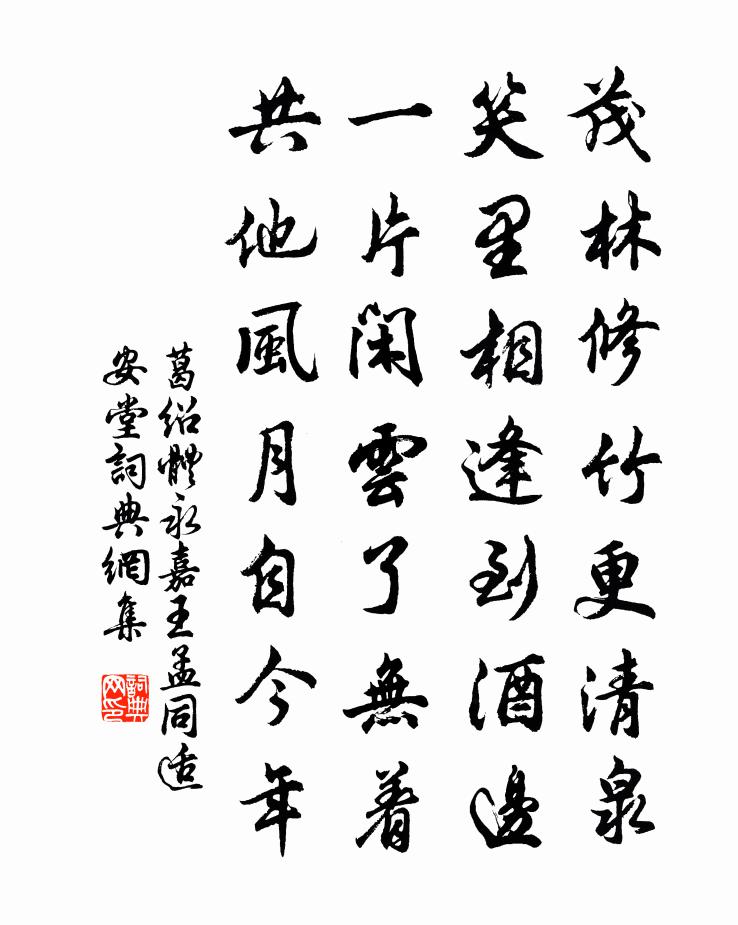 茂林修竹更清泉
笑里相逢到酒邊
一片閑雲了無着
共他風月自今年
葛紹體永嘉王孟同適
安堂詞典網集
詞典
网印